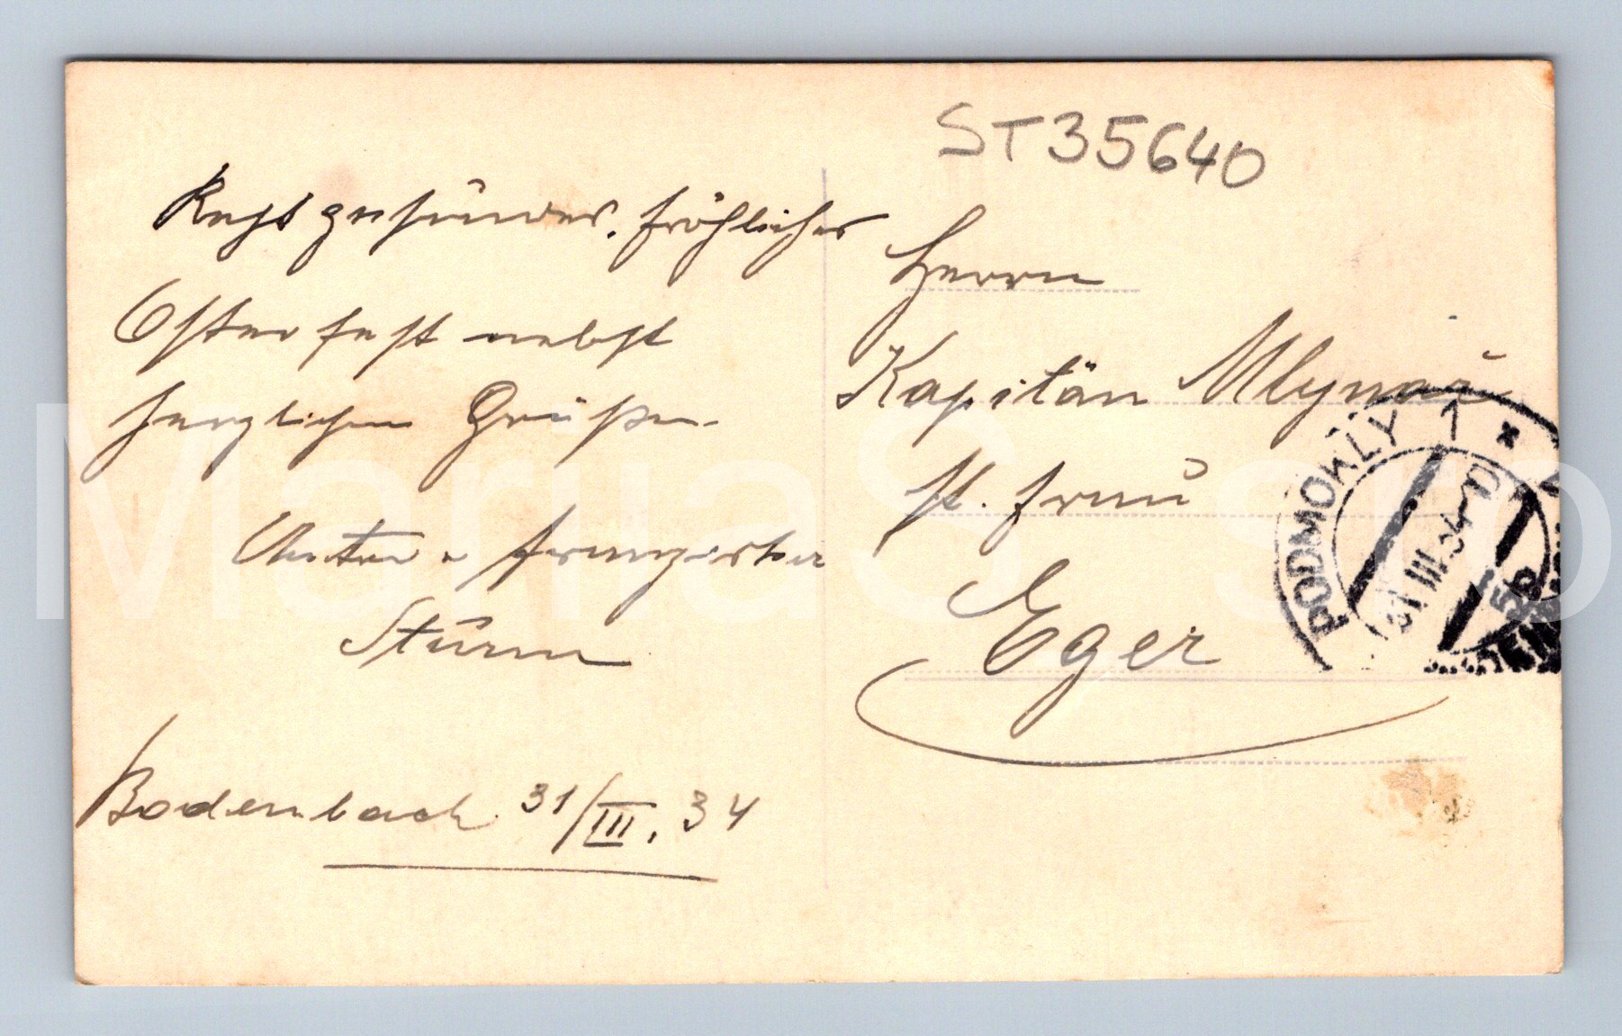 ST35640
Recht gesundes, fröhliches
Osterfest nebst
herzlichen Grüßen
Anton u
Sturm
Bodenbach 31/III. 34
Herrn
Kapitän Mlynař
Eger
PODMOKLY 1 *
31 III 34